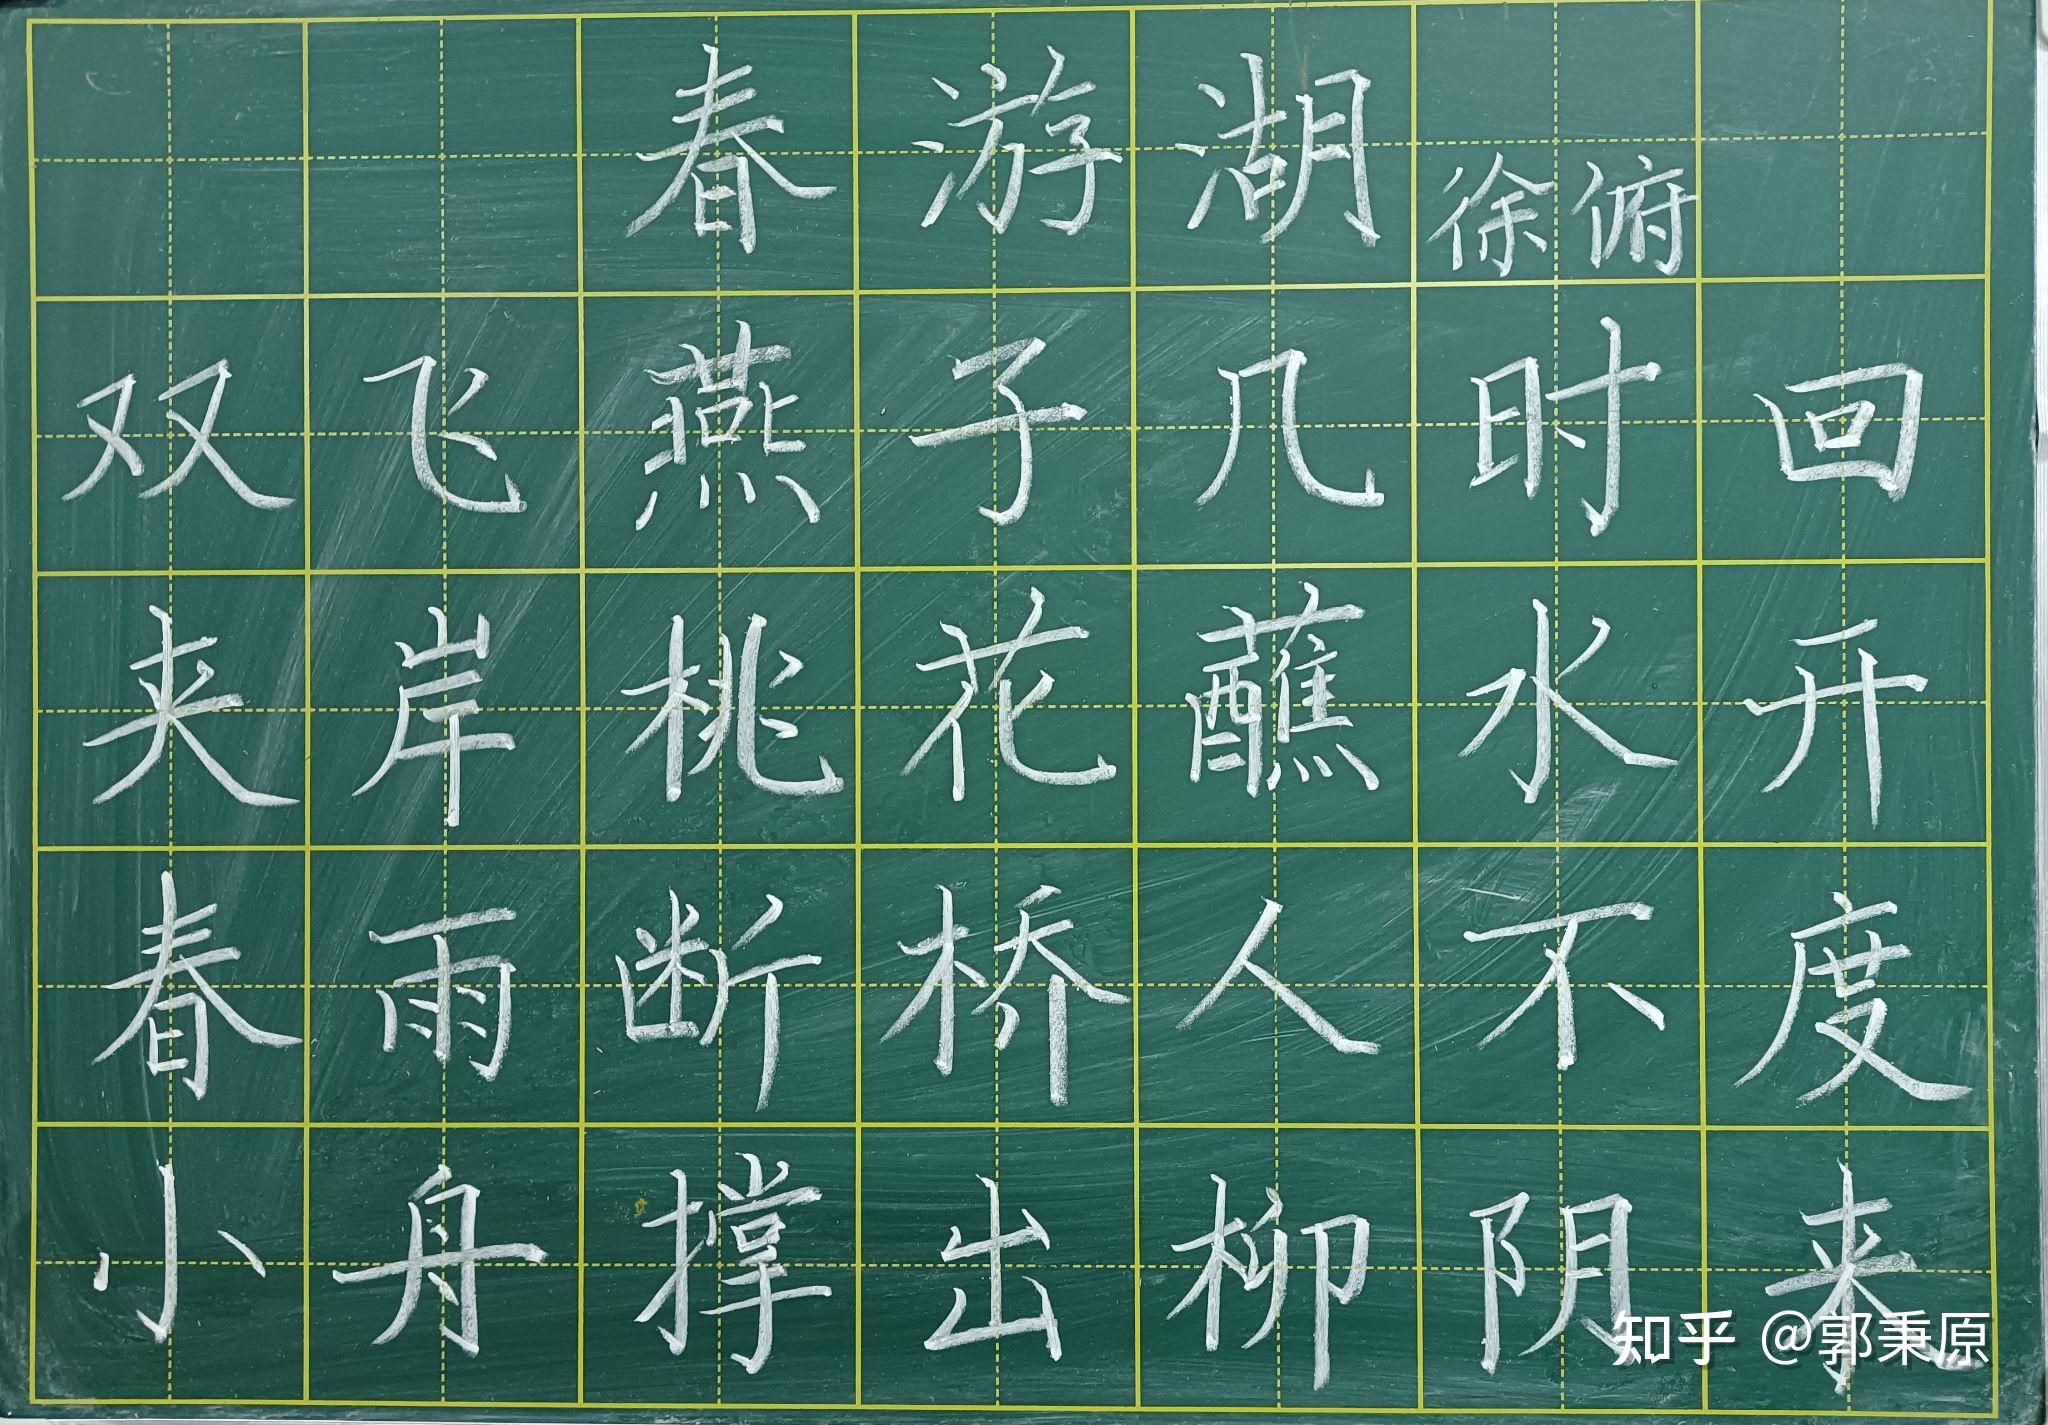 春游湖 徐俯
双飞燕子几时回
夹岸桃花蘸水开
春雨断桥人不度
小舟撑出柳阴来
知乎 @郭秉原